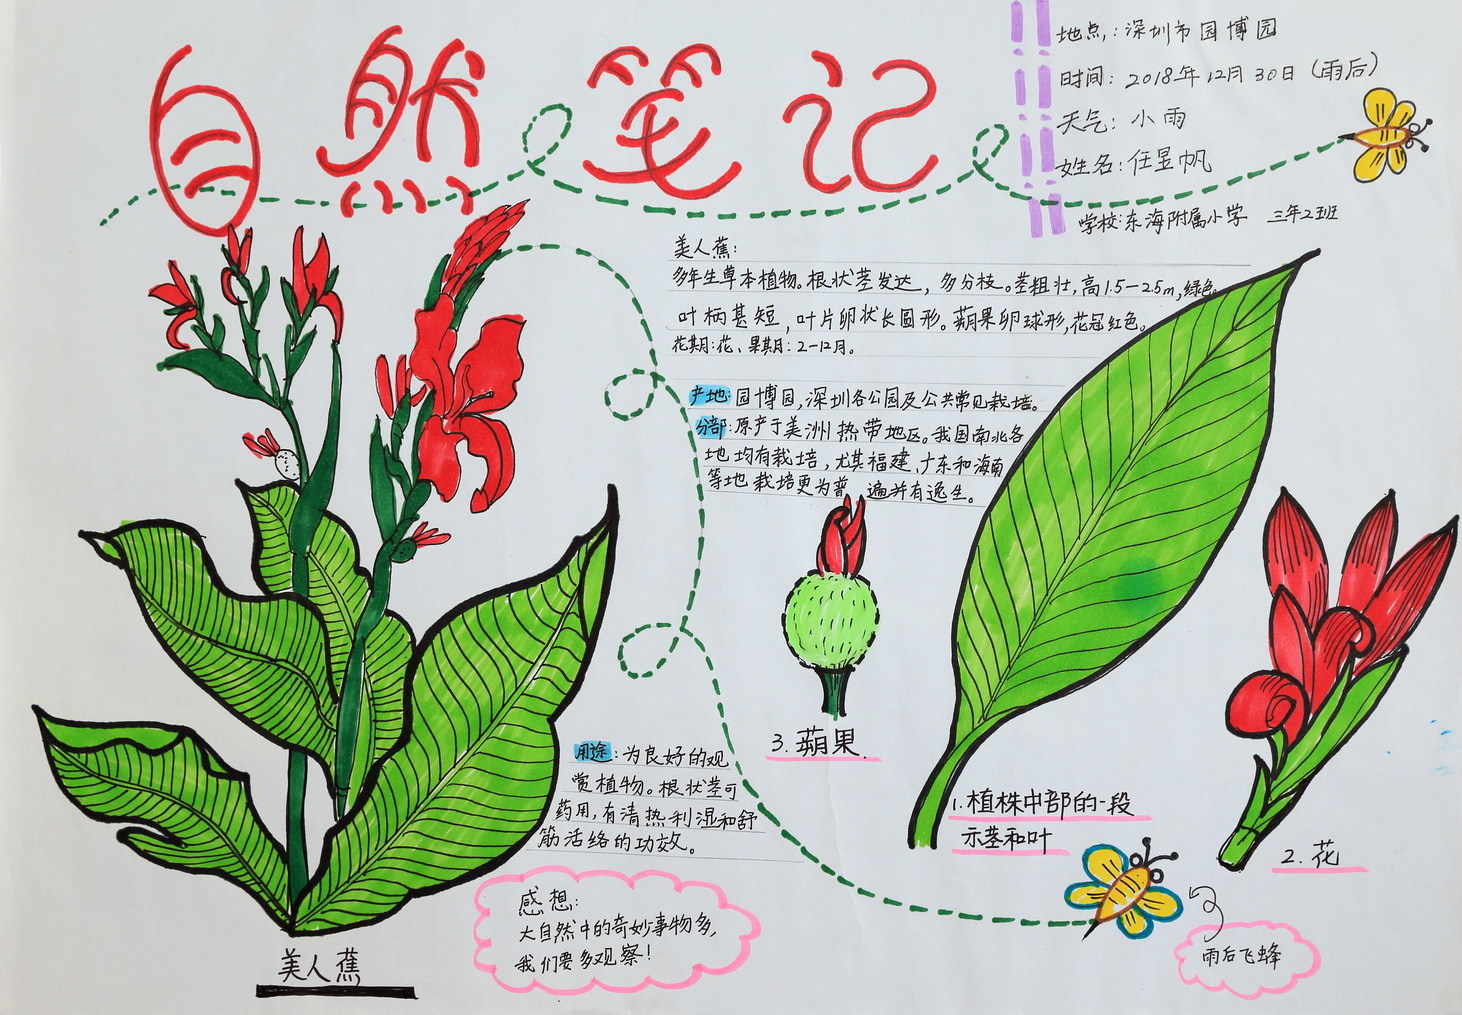 自然笔记
地点：深圳市园博园
时间：2018年12月30日（雨后）
天气：小雨
姓名：任昱帆
学校：东海附属小学 三年2班
美人蕉：
多年生草本植物。根状茎发达，多分枝。茎粗壮，高1.5—2.5m，绿色。
叶柄甚短，叶片卵状长圆形。蒴果卵球形，花冠红色。
花期：花、果期：2—12月。
产地：园博园，深圳各公园及公共常见栽培。
分部：原产于美洲热带地区。我国南北各
地均有栽培，尤其福建、广东和海南
等地栽培更为普遍并有逸生。
3.蒴果
用途：为良好的观
赏植物。根状茎可
药用，有清热利湿和舒
筋活络的功效。
1.植株中部的一段
示茎和叶
2.花
感想：
大自然中的奇妙事物多，
我们要多观察！
雨后飞蜂
美人蕉